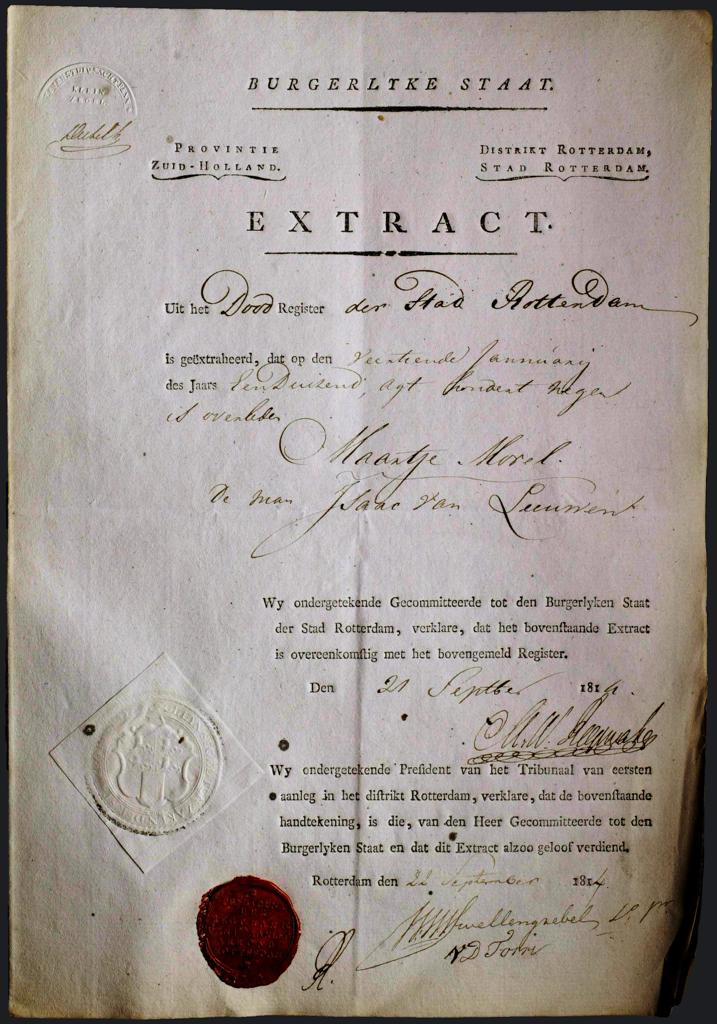 KLEIN
ZEGEL.
BURGERLYKE STAAT.
PROVINTIE
ZUID-HOLLAND.
DISTRIKT ROTTERDAM,
STAD ROTTERDAM.
EXTRACT.
Uit het Dood Register der Stad Rotterdam
is geëxtraheerd, dat op den Veertiende Jannuarij
des Jaars EenDuizend, agt hondert negen
is overleden
Maartje Morel.
De man Isaac van Leeuwen
Wy ondergetekende Gecommitteerde tot den Burgerlyken Staat
der Stad Rotterdam, verklare, dat het bovenſtaande Extract
is overeenkomſtig met het bovengemeld Register.
Den 21 Septber 1814.
Wy ondergetekende Preſident van het Tribunaal van eersten
aanleg in het diſtrikt Rotterdam, verklare, dat de bovenſtaande
handtekening, is die, van den Heer Gecommitteerde tot den
Burgerlyken Staat en dat dit Extract alzoo geloof verdiend.
Rotterdam den 22 September 1814